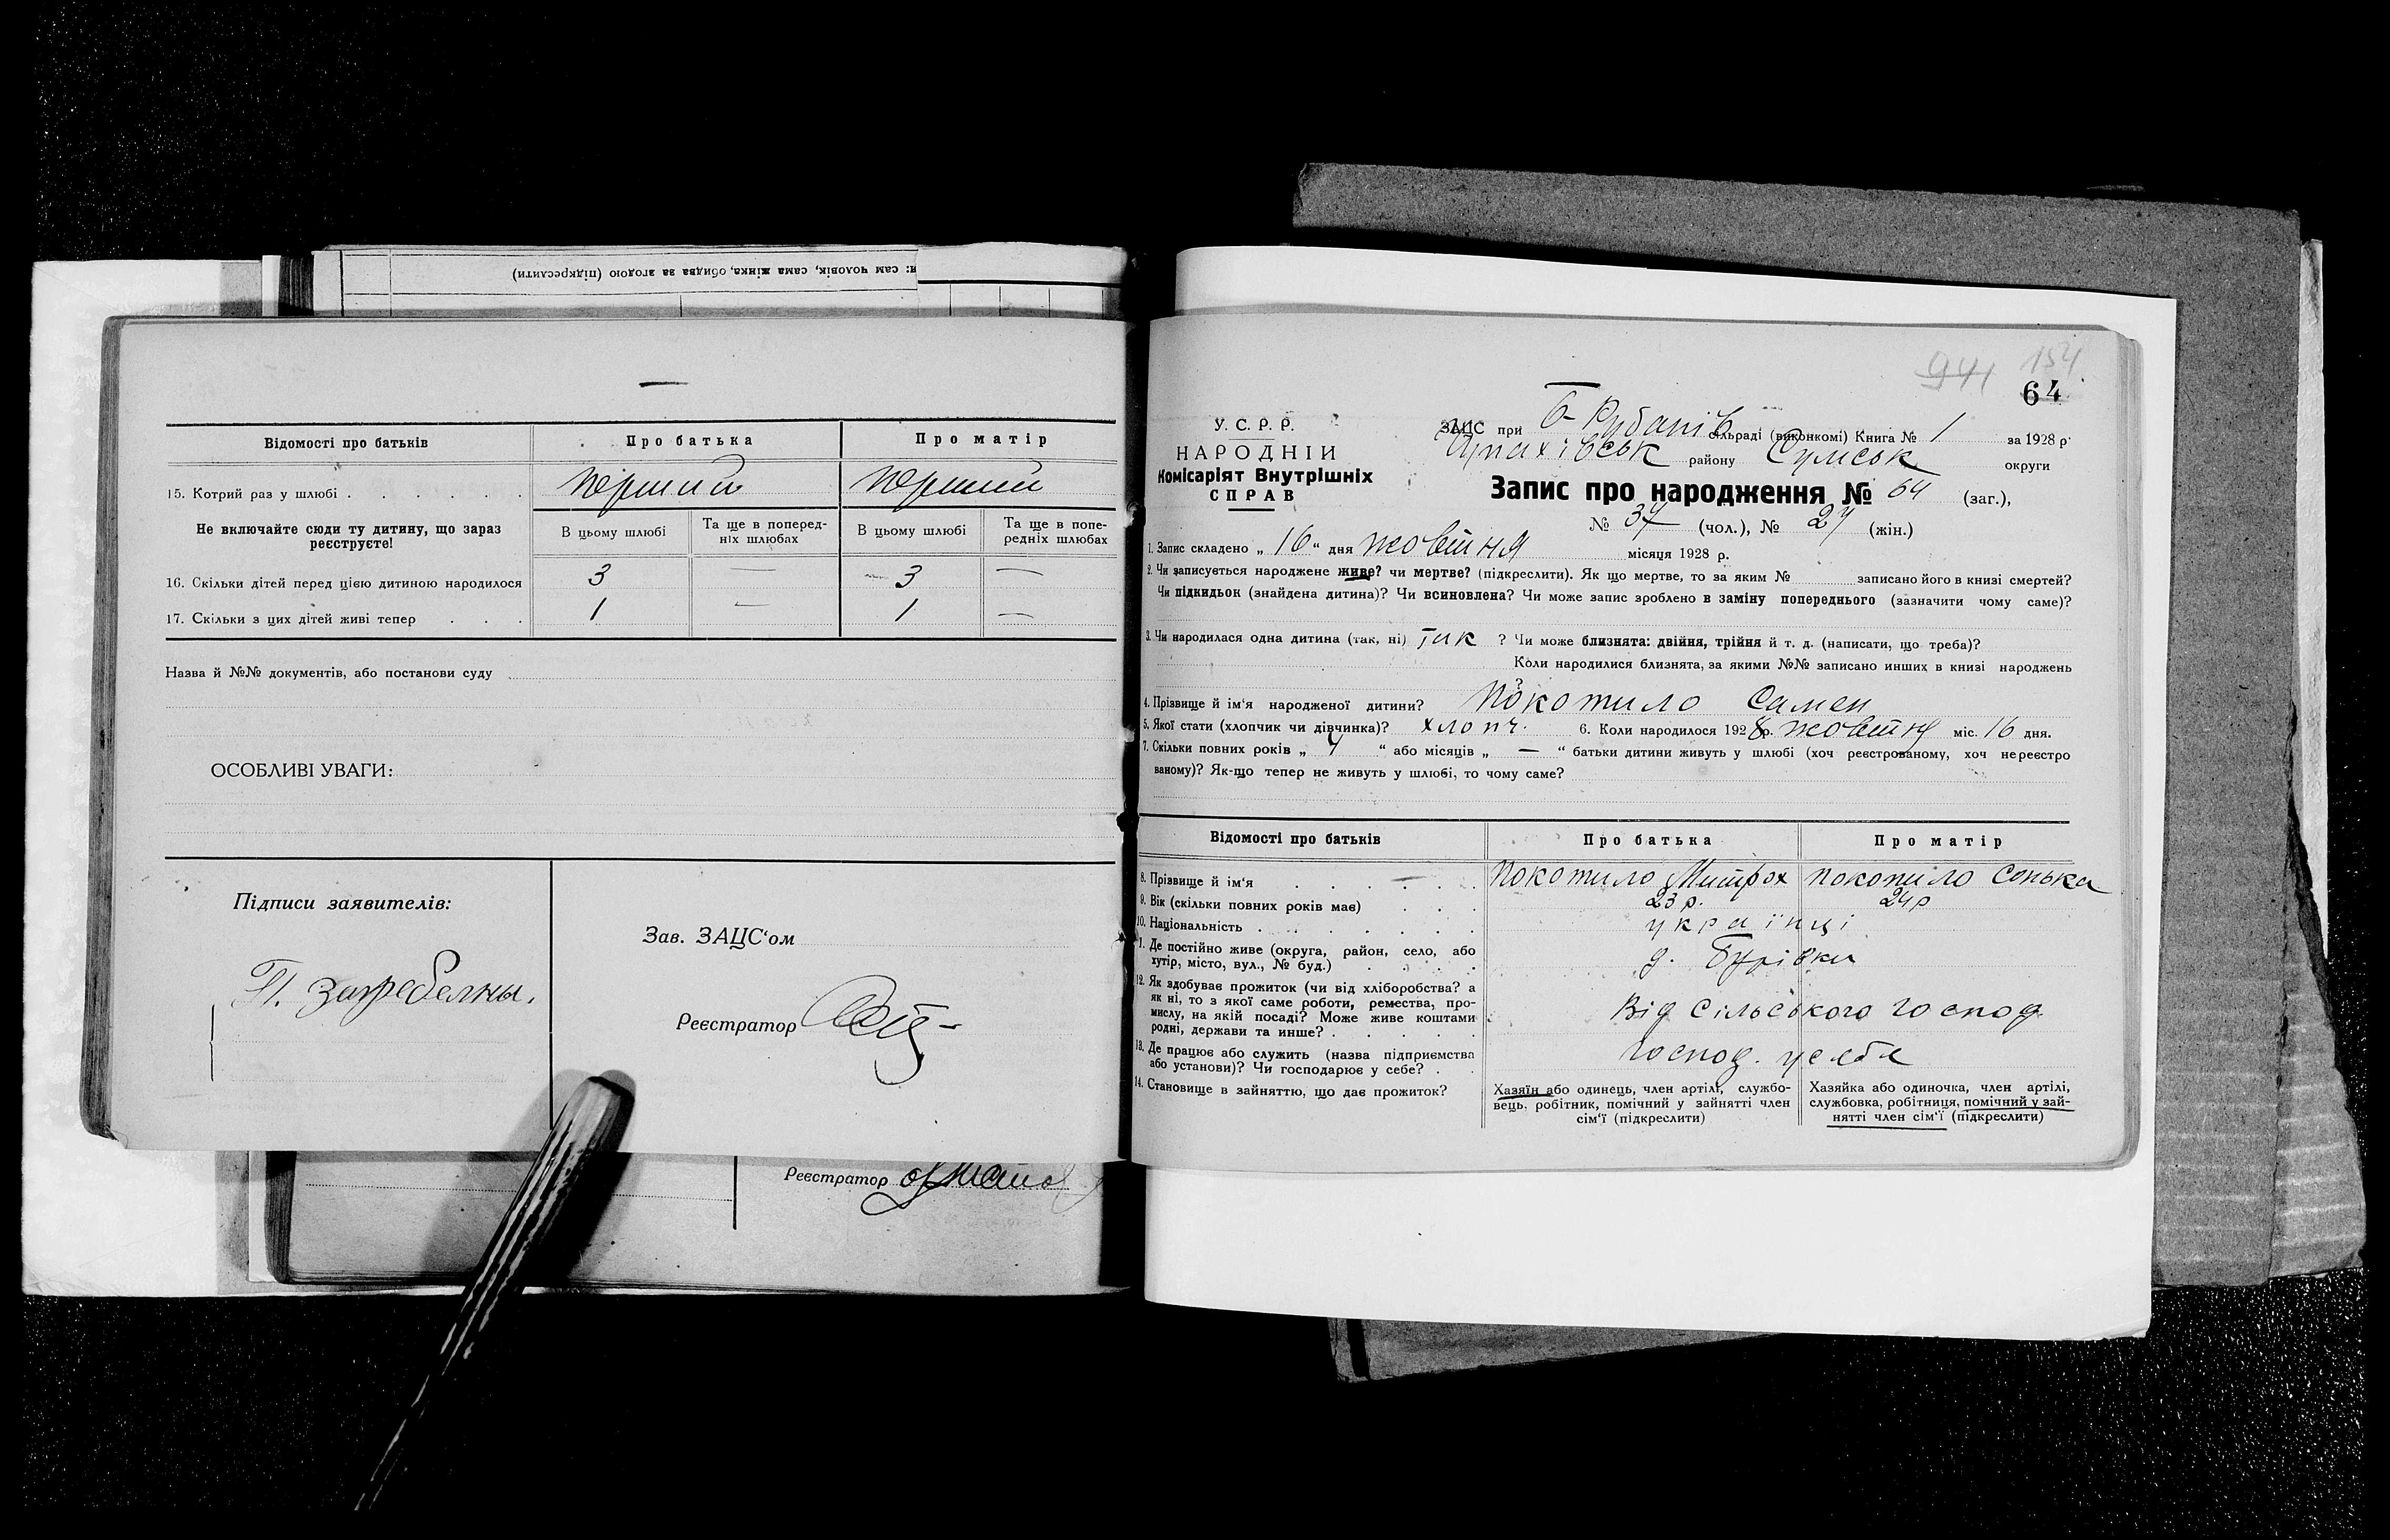 и: сам чоловік, сама жінка, обидва за згодою (підкреслити)
Відомості про батьків
Про батька
Про матір
15. Котрий раз у шлюбі
перший
перший
Не включайте сюди ту дитину, що зараз реєструєте!
В цьому шлюбі
Та ще в попередніх шлюбах
В цьому шлюбі
Та ще в попередніх шлюбах
16. Скільки дітей перед цією дитиною народилося
3 — 3 —
17. Скільки з цих дітей живі тепер
1 — 1 —
Назва й №№ документів, або постанови суду
ОСОБЛИВІ УВАГИ:
Підписи заявителів:
П. Загребелны.
Зав. ЗАЦС‘ом
Реєстратор
Реєстратор
941 154
64
У. С. Р. Р.
НАРОДНІЙ
Комісаріят Внутрішніх
СПРАВ
ЗАЦС при Б-Рубанів сільраді (виконкомі) Книга № 1 за 1928 р.
району Сумськ округи
Запис про народження № 64 (заг.),
№ 37 (чол.), № 27 (жін.)
1. Запис складено „ 16 “ дня жовтня місяця 1928 р.
2. Чи записується народжене живе? чи мертве? (підкреслити). Як що мертве, то за яким № записано його в книзі смертей?
Чи підкидьок (знайдена дитина)? Чи всиновлена? Чи може запис зроблено в заміну попереднього (зазначити чому саме)?
3. Чи народилася одна дитина (так, ні) так ? Чи може близнята: двійня, трійня й т. д. (написати, що треба)?
Коли народилися близнята, за якими №№ записано инших в книзі народжень
?
4. Прізвище й ім‘я народженої дитини? Покотило Семен
5. Якої стати (хлопчик чи дівчинка)? хлопч. 6. Коли народилося 1928 р. жовтня міс. 16 дня.
7. Скільки повних років „ 4 “ або місяців „ — “ батьки дитини живуть у шлюбі (хоч реєстрованому, хоч нереєстро
ваному)? Як-що тепер не живуть у шлюбі, то чому саме?
Відомості про батьків
Про батька
Про матір
8. Прізвище й ім‘я
Покотило Митрох
Покотило Сонька
9. Вік (скільки повних років має)
23 р.
24 р
10. Національність
українці
1. Де постійно живе (округа, район, село, або
хутір, місто, вул., № буд.)
12. Як здобуває прожиток (чи від хліборобства? а
як ні, то з якої саме роботи, ремества, про-
мислу, на якій посаді? Може живе коштами
родні, держави та инше?
Від сільського господ
13. Де працює або служить (назва підприємства
або установи)? Чи господарює у себе?
господ. у себе
14. Становище в зайняттю, що дає прожиток?
Хазяїн або одинець, член артілі, службо-
вець, робітник, помічний у зайнятті член
сім‘ї (підкреслити)
Хазяйка або одиночка, член артілі,
службовка, робітниця, помічний у зай-
нятті член сім‘ї (підкреслити)